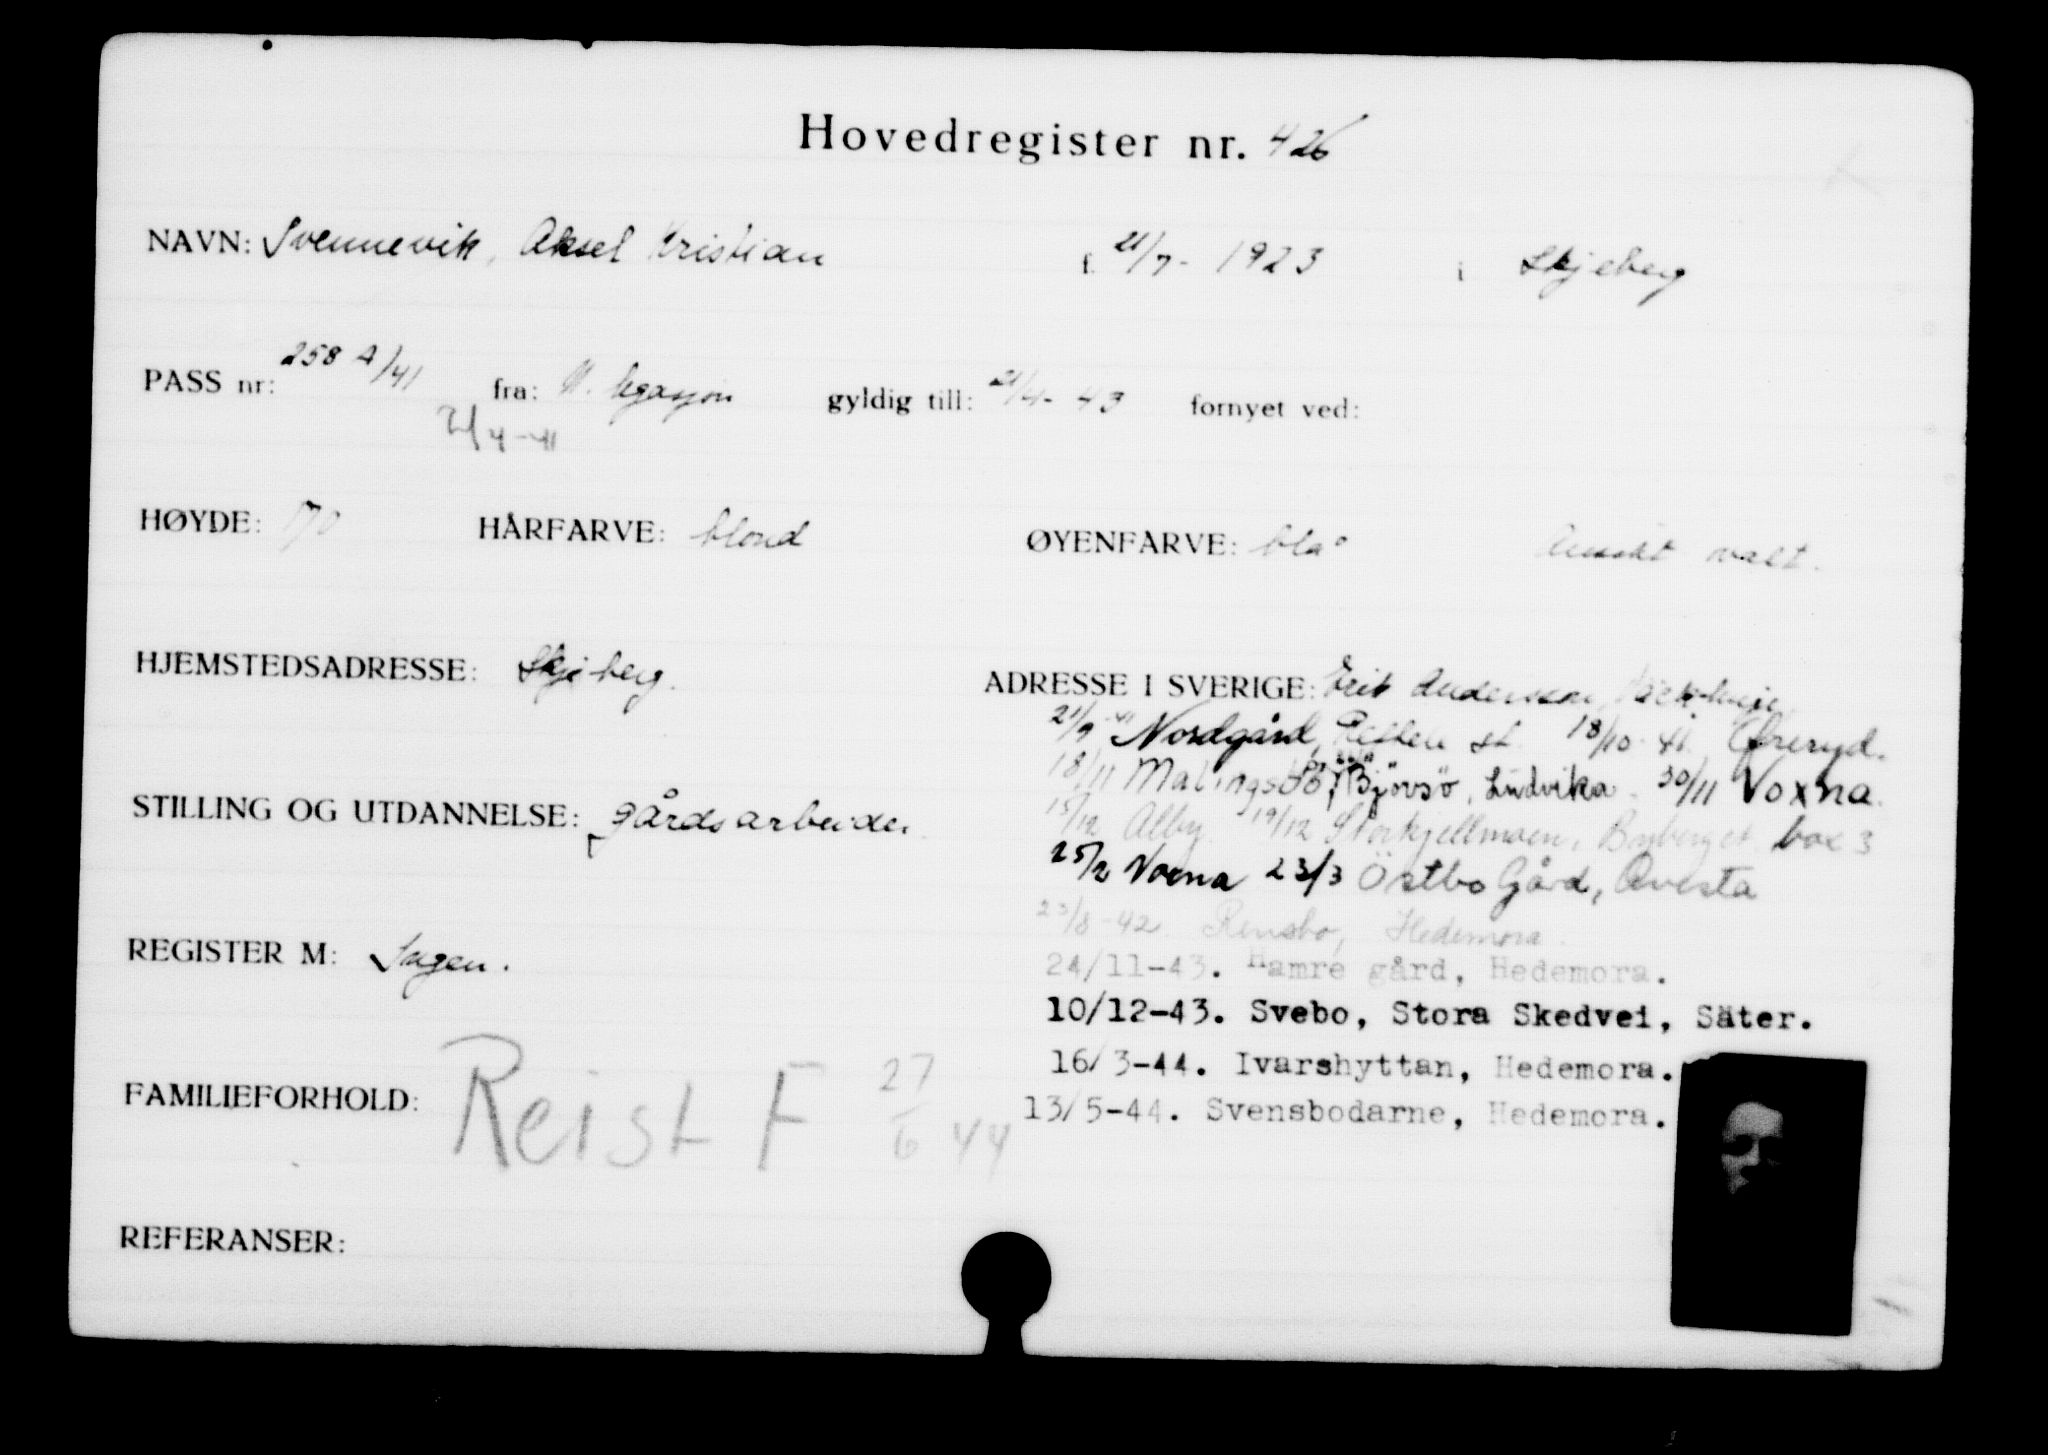 Hovedregister nr. 426
NAVN: Svennevik, Aksel Kristian f. 21/7- 1923 i Skjeberg
PASS nr: 258 A/41 fra: N. legasjon gyldig till: 21/4- 43 fornyet ved:
21/4-41
HØYDE: 170 HÅRFARVE: blond ØYENFARVE: blå Ansikt ovalt.
HJEMSTEDSADRESSE: Skjeberg. ADRESSE I SVERIGE: Erik Andersson,
21/9 -41 Nordgård, st. 18/10-41. Öreryd.
18/11 Malingsbo, Björsjö, Ludvika. 30/11 Voxna.
STILLING OG UTDANNELSE: gårdsarbeider
15/12 Alby 19/12 Storkjellmoen, Byberget box 3
25/2 Voxna 23/3 Östbo Gård, Avesta
23/8-42. Rensbo, Hedemora.
REGISTER M: Sagen.
24/11-43. Hamre gård, Hedemora.
10/12-43. Svebo, Stora Skedvei, Säter.
16/3-44. Ivarshyttan, Hedemora.
FAMILIEFORHOLD: Reist F 27/6 44
13/5-44. Svensbodarne, Hedemora.
REFERANSER: